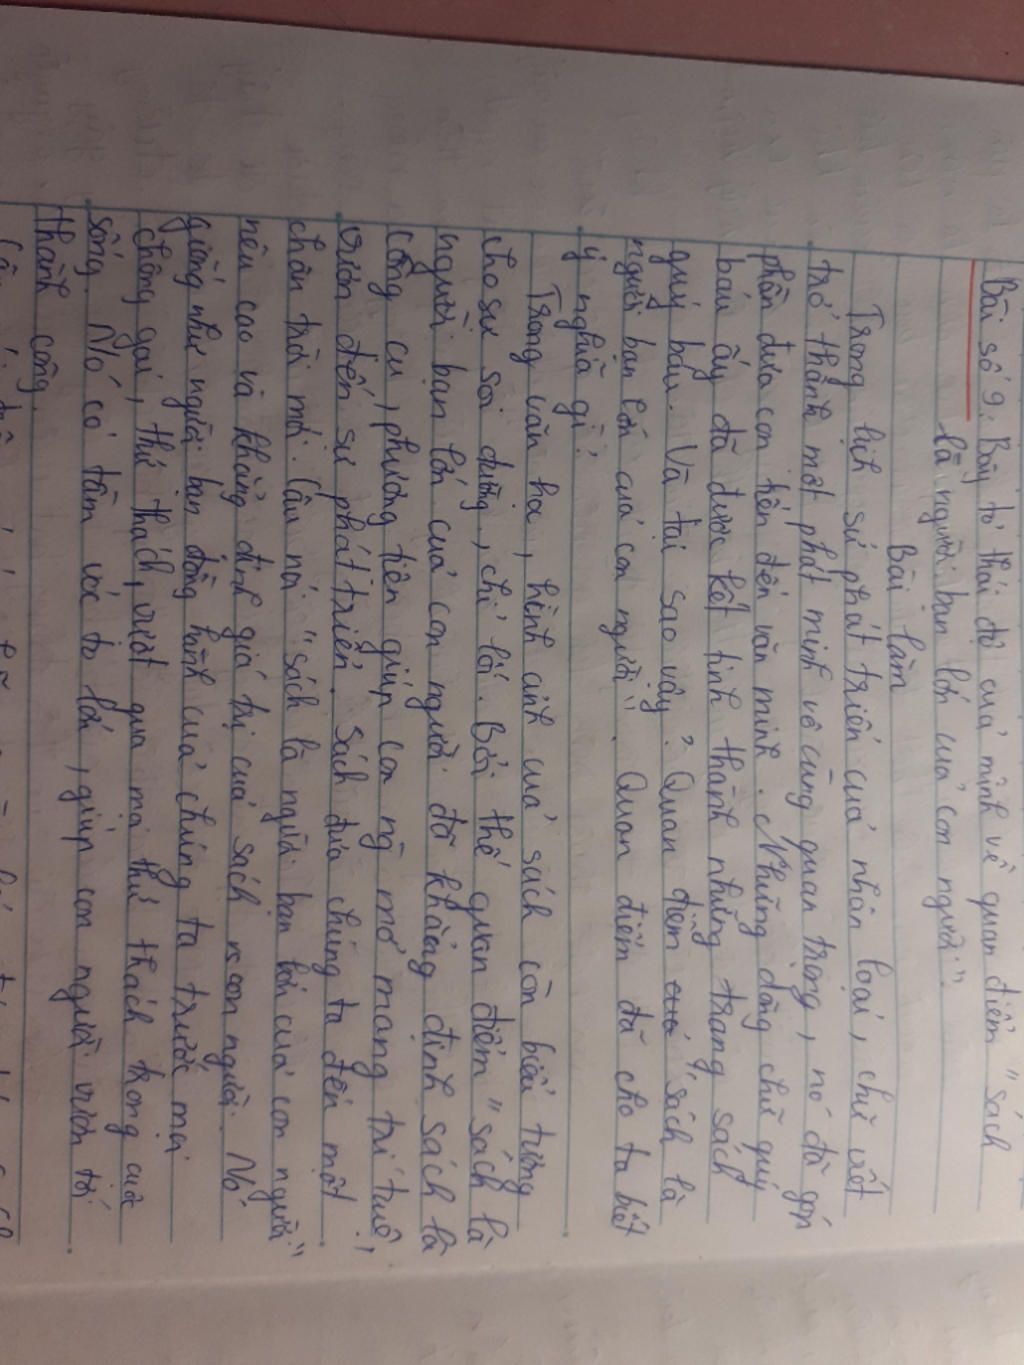 Bài số 9: Bày tỏ thái độ của mình về quan điểm "sách
là người bạn lớn của con người".
Bài làm
Trong lịch sử phát triển của nhân loại, chữ viết
trở thành một phát minh vô cùng quan trọng, nó đã góp
phần đưa con tiến đến văn minh. Những dòng chữ quý
báu ấy đã được kết tinh thành những trang sách
quý báu. Và tại sao vậy? Quan điểm "sách là
người bạn lớn của con người". Quan điểm đã cho ta biết
ý nghĩa gì?
Trong văn hoá, hình ảnh của sách còn biểu tượng
cho sự soi đường, chỉ lối. Bởi thế quan điểm "sách là
người bạn lớn của con người" đã khẳng định sách là
công cụ, phương tiện giúp con ng mở mang trí tuệ,
vươn đến sự phát triển. Sách đưa chúng ta đến một
chân trời mới. Câu nói "sách là người bạn lớn của con người"
nêu cao và khẳng định giá trị của sách vs con người. Nó
giống như người bạn đồng hành của chúng ta trước mọi
chông gai, thử thách, vượt qua mọi thử thách trong cuộc
sống. Nó có tầm vóc to lớn, giúp con người vươn tới
thành công.